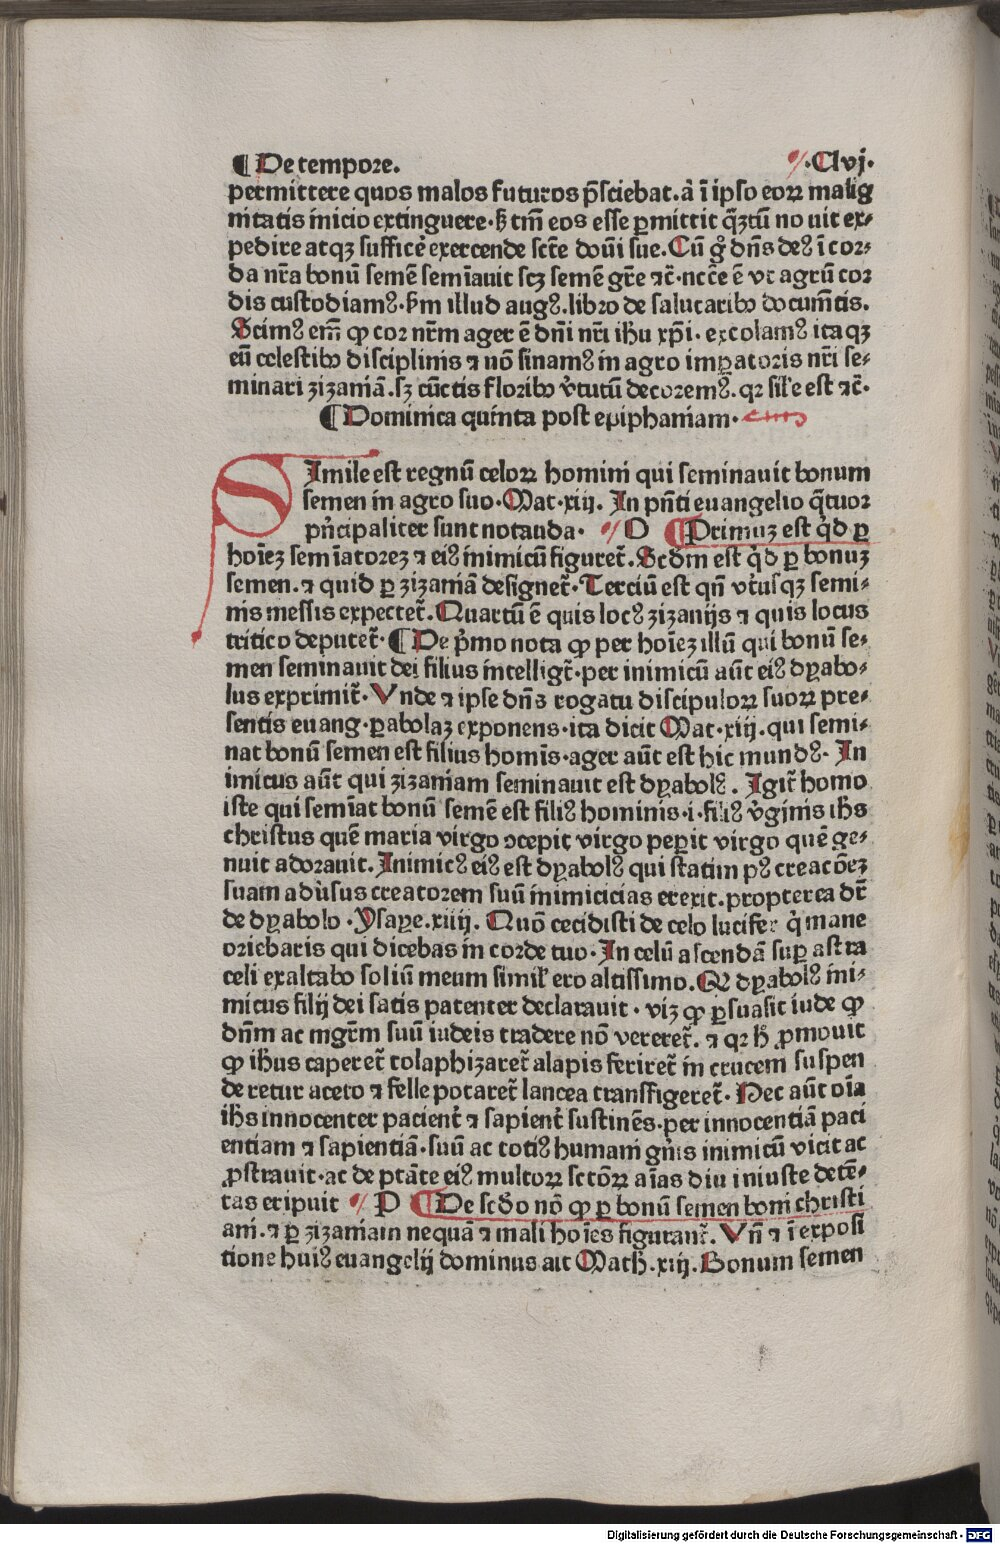 ¶ De tempore. .Clvj.
permittere quos malos futuros p̄sciebat. a̍ ī ipso eoꝝ malig
nitatis inicio extinguere. hͦ tm̄ eos esse ꝑmittit q̄ꝫtū no uit ex-
pedire atqꝫ suffice̍ exercende scte̅ doūi sue. Cū gͦ dn̄s deꝰ ī cor-
da nr̄a bonū semē semīauit scꝫ semē gr̄e ⁊c̄. ncc̄e ē vt agrū cor
dis custodiamꝰ. ẜm illud augꝰ. libro de salutaribꝰ documētis.
Scimꝰ em̄ ꝙ cor nr̄m ager ē dn̄i nr̄i ih̄u xp̄i. excolamꝰ itaqꝫ
eū celestibꝰ disciplinis ⁊ nō sinamꝰ in agro imꝑatoris nr̄i se-
minari zizaniā. sꝫ cūctis floribꝰ v̍tutū decoremꝰ. qꝛ sil̄e est ⁊c̄.
¶ Dominica quinta post epiphaniam.
Simile est regnū celoꝝ homini qui seminauit bonum
semen in agro suo. Mat. xiij. In pn̄ti euangelio q̄tuor
pn̍cipaliter sunt notanda. O ¶ Primuꝫ est q̍d ꝑ
hoīeꝫ semīatoreꝫ ⁊ eiꝰ inimicū figuret̄. Scdm̄ est q̍d ꝑ bonuꝫ
semen. ⁊ quid ꝑ zizaniā designet̄. Terciū est qn̄ vt̍usqꝫ semi-
nis messis expectet̄. Quartū ē quis locꝰ zizanijs ⁊ quis locus
tritico deputet̄. ¶ De p̍mo nota ꝙ per hoīeꝫ illū qui bonū se-
men seminauit dei filius intelligt̄. per inimicū aūt eiꝰ dyabo-
lus exprimit̄. Vnde ⁊ ipse dn̄s rogatu discipuloꝝ suoꝝ pre-
sentis euang. ꝑabolaꝫ exponens. ita dicit Mat. xiij. qui semi-
nat bonū semen est filius homīs. ager aūt est hic mundꝰ. In
imicus aūt qui zizaniam seminauit est dyabolꝰ. Igit̄ homo
iste qui semīat bonū semē est filiꝰ hominis. i. filiꝰ v̍ginis ih̄s
christus quē maria virgo ꝯcepit virgo peꝑit virgo quē ge-
nuit adorauit. Inimicꝰ eiꝰ est dyabolꝰ qui statim pꝰ creacōeꝫ
suam adu̍sus creatorem suū inimicicias erexit. propterea dr̄
de dyabolo. Ysaye. xiiij. Quō cecidisti de celo lucifer q̍ mane
oriebaris qui dicebas in corde tuo. In celū ascendā suꝑ astra
celi exaltabo soliū meum simil̄ ero altissimo. Qꝫ dyabolꝰ ini-
micus filij dei satis patenter declarauit. viꝫ ꝙ ꝑsuasit iude ꝙ
dn̄m ac mgr̄m suū iudeis tradere nō vereret̄. ⁊ qꝛ hͦ ꝓmouit
ꝙ ih̄us caperet̄ colaphizaret̄ alapis feriret̄ in crucem suspen
deretur aceto ⁊ felle potaret̄ lancea transffigeret̄. Hec aūt oīa
ih̄s innocenter pacient̄ ⁊ sapient̄ sustinēs. per innocentiā paci
entiam ⁊ sapientiā. suū ac totiꝰ humani gn̍is inimicū vicit ac
ꝓstrauit. ac de ptāte eiꝰ multoꝝ sctōꝝ aīas diu iniuste detē-
tas eripuit P ¶ De scdo nō ꝙ ꝑ bonū semen boni christi
ani. ⁊ ꝑ zizaniam nequā ⁊ mali hoīes figurant̄. Vn̄ ⁊ ī exposi
tione huiꝰ euangelij dominus ait Math̄. xiij. Bonum semen
Digitalisierung gefördert durch die Deutsche Forschungsgemeinschaft - DFG